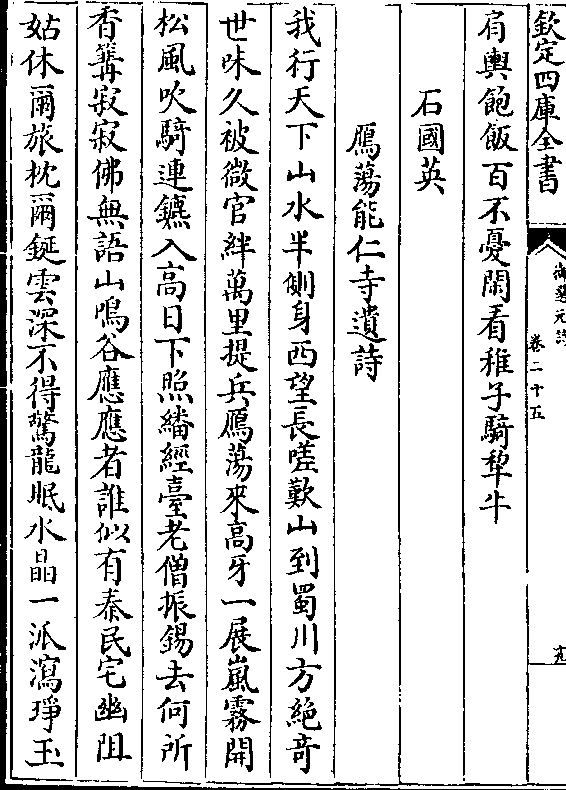 欽定四庫全書
御選元詩
卷二十五
肩輿飽飯百不憂閒看稚子騎犂牛
石國英
鴈蕩能仁寺遺詩
我行天下山水半側身西望長嗟歎山到蜀川方絶竒
世味久被微官絆萬里提兵鴈蕩來高牙一展嵐霧開
松風吹騎連鑣入高日下照繙經臺老僧振錫去何所
香篝寂寂佛無語山鳴谷應應者誰似有秦民宅幽阻
姑休爾旅枕爾鋋雲深不得驚龍眠水晶一派瀉琤玉